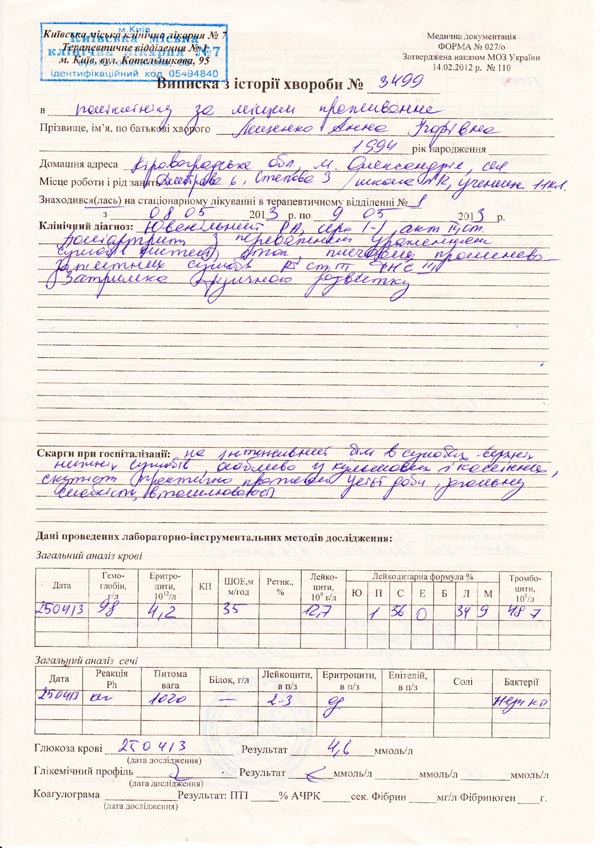 м.Київ
Київська міська клінічна лікарня № 7
Терапевтичне відділення № 1
м. Київ, вул. Котельникова, 95
Київська міська
клінічна лікарня №7
ідентифікаційний код 05494840
Медична документація
ФОРМА № 027/о
Затверджена наказом МОЗ України
14.02.2012 р. № 110
Виписка з історії хвороби № 3499
в поліклініку за місцем проживання
Прізвище, ім'я, по батькові хворого Анна Ігорівна
1994 рік народження
Домашня адреса Кіровоградська обл, м. Олександрія, сел
Місце роботи і рід занять Дмитрова 6, Степова 3 / школа учениця 11 кл.
Знаходився(лась) на стаціонарному лікуванні в терапевтичному відділенні № 1
з 08 05 2013 р. по 9 05 2013 р.
Клінічний діагноз: Ювенільний РА, акт ІІ ст.
поліартрит з переважним ураженням
суглобів кистей, стоп, променево
суглобів ст ІІІ ФНС ІІІ
Затримка фізичного розвитку
Скарги при госпіталізації: на інтенсивний біль в суглобах верхніх
нижніх особливо у кульшових і колінних,
скутість практично протягом усієї доби, загальну
слабкість, втомлюваність
Дані проведених лабораторно-інструментальних методів дослідження:
Загальний аналіз крові
Дата Гемоглобін, г/л Еритроцити, 10¹²/л КП ШОЕ,м м/год Ретик., % Лейкоцити, 10⁹ г/л Лейкоцитарна формула % Тромбоцити, 10⁹/л
Ю П С Е Б Л М
250413 98 4,2 35 12,7 1 56 0 34 9 487
Загальний аналіз сечі
Дата Реакція Ph Питома вага Білок, г/л Лейкоцити, в п/з Еритроцити, в п/з Епітелій, в п/з Солі Бактерії
250413 1020 — 2-3
Глюкоза крові 250413 Результат 4,6 ммоль/л
(дата дослідження)
Глікемічний профіль Результат ммоль/л ммоль/л ммоль/л
(дата дослідження)
Коагулограма Результат: ПТІ % АЧРК сек. Фібрин мг/л Фібриноген г.
(дата дослідження)